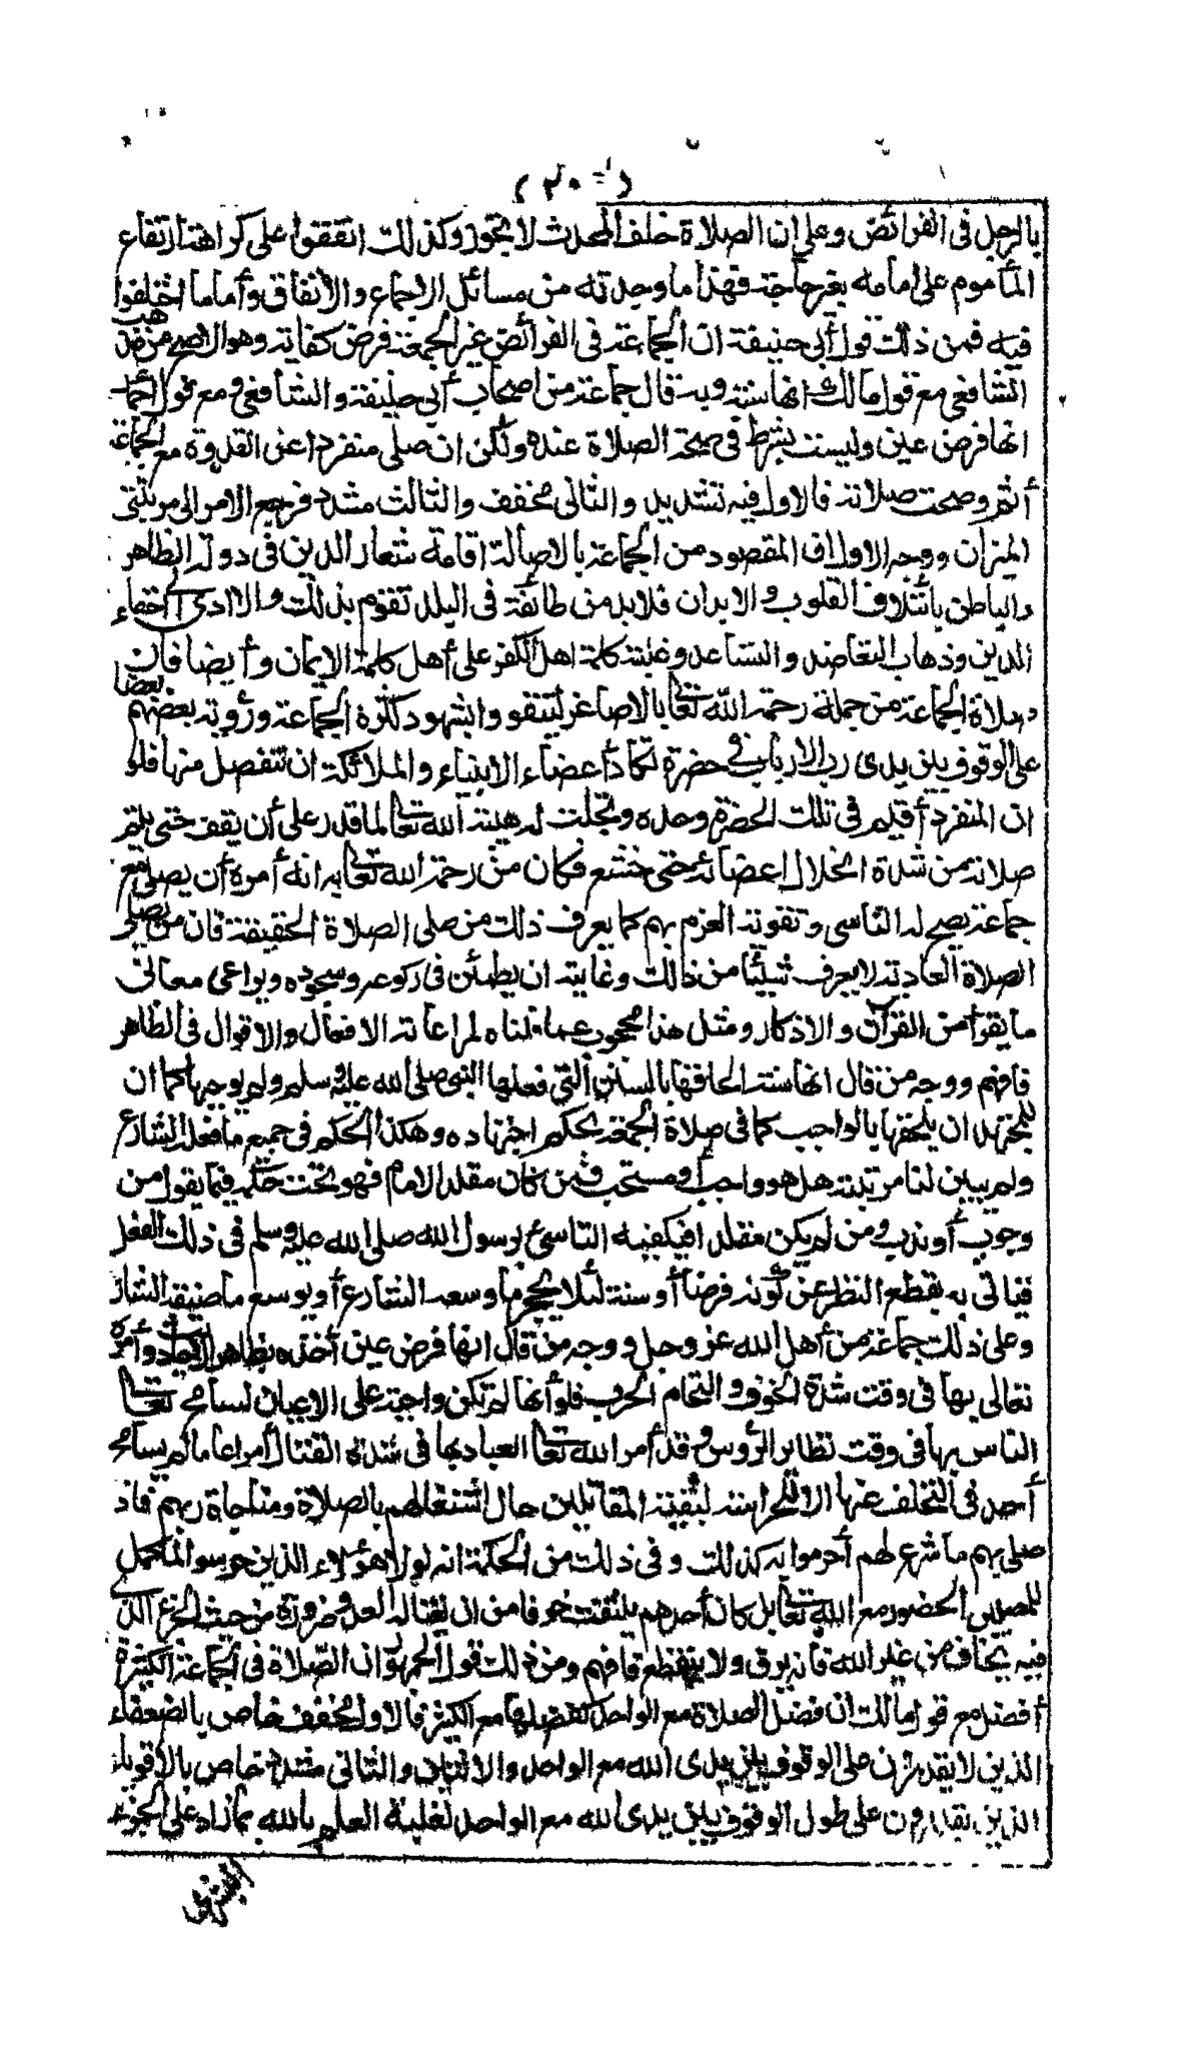 (٢٠٠)
بالرجل في الفرائض وعلى ان الصلاة خلف المحدث لا تجوز وكذلك اتفقوا على كراهة ارتفاع
المأموم على امامه بغير حاجة فهذا ما وجدته من مسائل الاجماع والاتفاق وأما ما اختلفوا
فيه فمن ذلك قول أبي حنيفة ان الجماعة في الفرائض غير الجمعة فرض كفاية وهو الاصح من مذهب
الشافعي مع قول مالك انها سنة وبه قال جماعة من اصحاب أبي حنيفة والشافعي ومع قول أحمد
انها فرض عين وليست بشرط في صحة الصلاة عنده ولكن ان صلى منفردا عن القدوة مع الجماعة
أثم وصحت صلاته فالاول فيه تشديد والثاني مخفف والثالث مشدد فرجع الامر الى مرتبتي
الميزان ووجه الاول ان المقصود من الجماعة بالاصالة اقامة شعار الدين في دولة الظاهر
والباطن بائتلاف القلوب والابدان فلا بد من طائفة في البلد تقوم بذلك والا ادى الى اخفاء
الدين وذهاب التعاضد والتساعد وغلبة كلمة اهل الكفر على أهل كلمة الايمان وأيضا فان
صلاة الجماعة من جملة رحمة الله تعالى بالاصاغر ليتقووا بشهود كثرة الجماعة ورؤية بعضهم بعضا
على الوقوف بين يدى رب الارباب في حضرة تكاد أعضاء الانبياء والملائكة ان تتفصل منها فلو
ان المنفرد أقيم في تلك الحضرة وحده وتجلت له هيبة الله تعالى لما قدر على أن يقف حتى يتم
صلاته من شدة انخلال اعضائه حتى خشع فكان من رحمة الله تعالى به انه أمره أن يصلي مع
جماعة يصح له التاسى وتقوية العزم بهم كما يعرف ذلك من صلى الصلاة الحقيقة فان من يصلي
الصلاة العادية لا يعرف شيئا من ذلك وغايته ان يطمئن في ركوعه وسجوده ويراعى معاني
ما يقرأ من القرآن والاذكار ومثل هذا محجوب عما قلناه لمراعاته الافعال والاقوال في الظاهر
فافهم ووجه من قال انها سنة الحاقها بالسنن التي فعلها النبي صلى الله عليه وسلم ولم يوجبها كما ان
للمجتهد ان يلحقها بالواجب كما في صلاة الجمعة بحكم اجتهاده وهكذا الحكم في جميع ما فعله الشارع
ولم يبين لنا مرتبته هل هو واجب أو مستحب فمن كان مقلد الامام فهو تحت حكمه فيما يقول من
وجوب أو ندب ومن لم يكن مقلدا فيكفيه التاسي برسول الله صلى الله عليه وسلم في ذلك الفعل
فيأتي به بقطع النظر عن كونه فرضا أو سنة لئلا يحجر ما وسعه الشارع أو يوسع ما ضيقه الشارع
وعلى ذلك جماعة من أهل الله عز وجل ووجه من قال انها فرض عين أخذه بظاهر وأمره
تعالى بها في وقت شدة الخوف والتحام الحرب فلو أنها لم تكن واجبة على الاعيان لسامح تعالى
الناس بها في وقت تطاير الرؤس وقد أمر الله تعالى العباد بها في شدة القتال أمرا عاما لم يسامح
أحد في التخلف عنها الا للحراسة لبقية المقاتلين حال اشتغالهم بالصلاة ومناجاة ربهم فاذا
صلى بهم ما شرع لهم أحرموا به كذلك وفي ذلك من الحكمة انه لولا هؤلاء الذين حرسوا لما كمل
للمصلين الحضور مع الله تعالى بل كان أحدهم يلتفت خوفا من ان يغتاله العدو ضرورة من حيث الجزء الذي
فيه يخاف من غير الله فانه يرق ولا ينقطع فافهم ومن ذلك قول الجمهور ان الصلاة في الجماعة الكثيرة
أفضل مع قول مالك ان فضل الصلاة مع الواحد كفضلها مع الكثير فالاول مخفف خاص بالضعفاء
الذين لا يقدرون على الوقوف بين يدى الله مع الواحد والاثنين والثاني مشدد خاص بالاقوياء
الذين يقدرون على طول الوقوف بين يدى الله مع الواحد لغلبة العلم بالله بما زاد على الجزء
البشرى